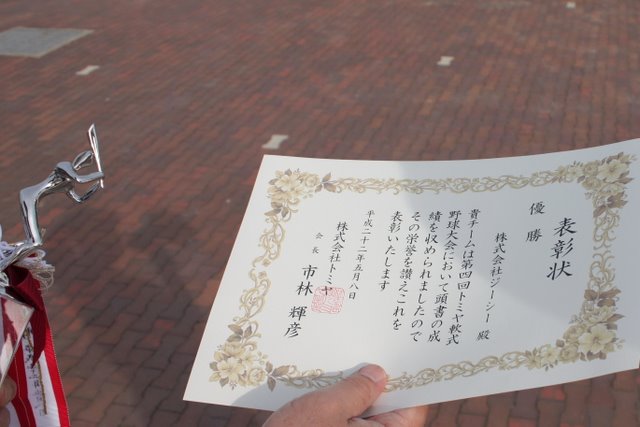 表彰状
優勝
株式会社ジーシー 殿
貴チームは第四回トミヤ軟式
野球大会において頭書の成
績を収められましたので
その栄誉を讃えこれを
表彰いたします
平成二十二年五月八日
株式会社トミヤ
会長 市林 輝彦